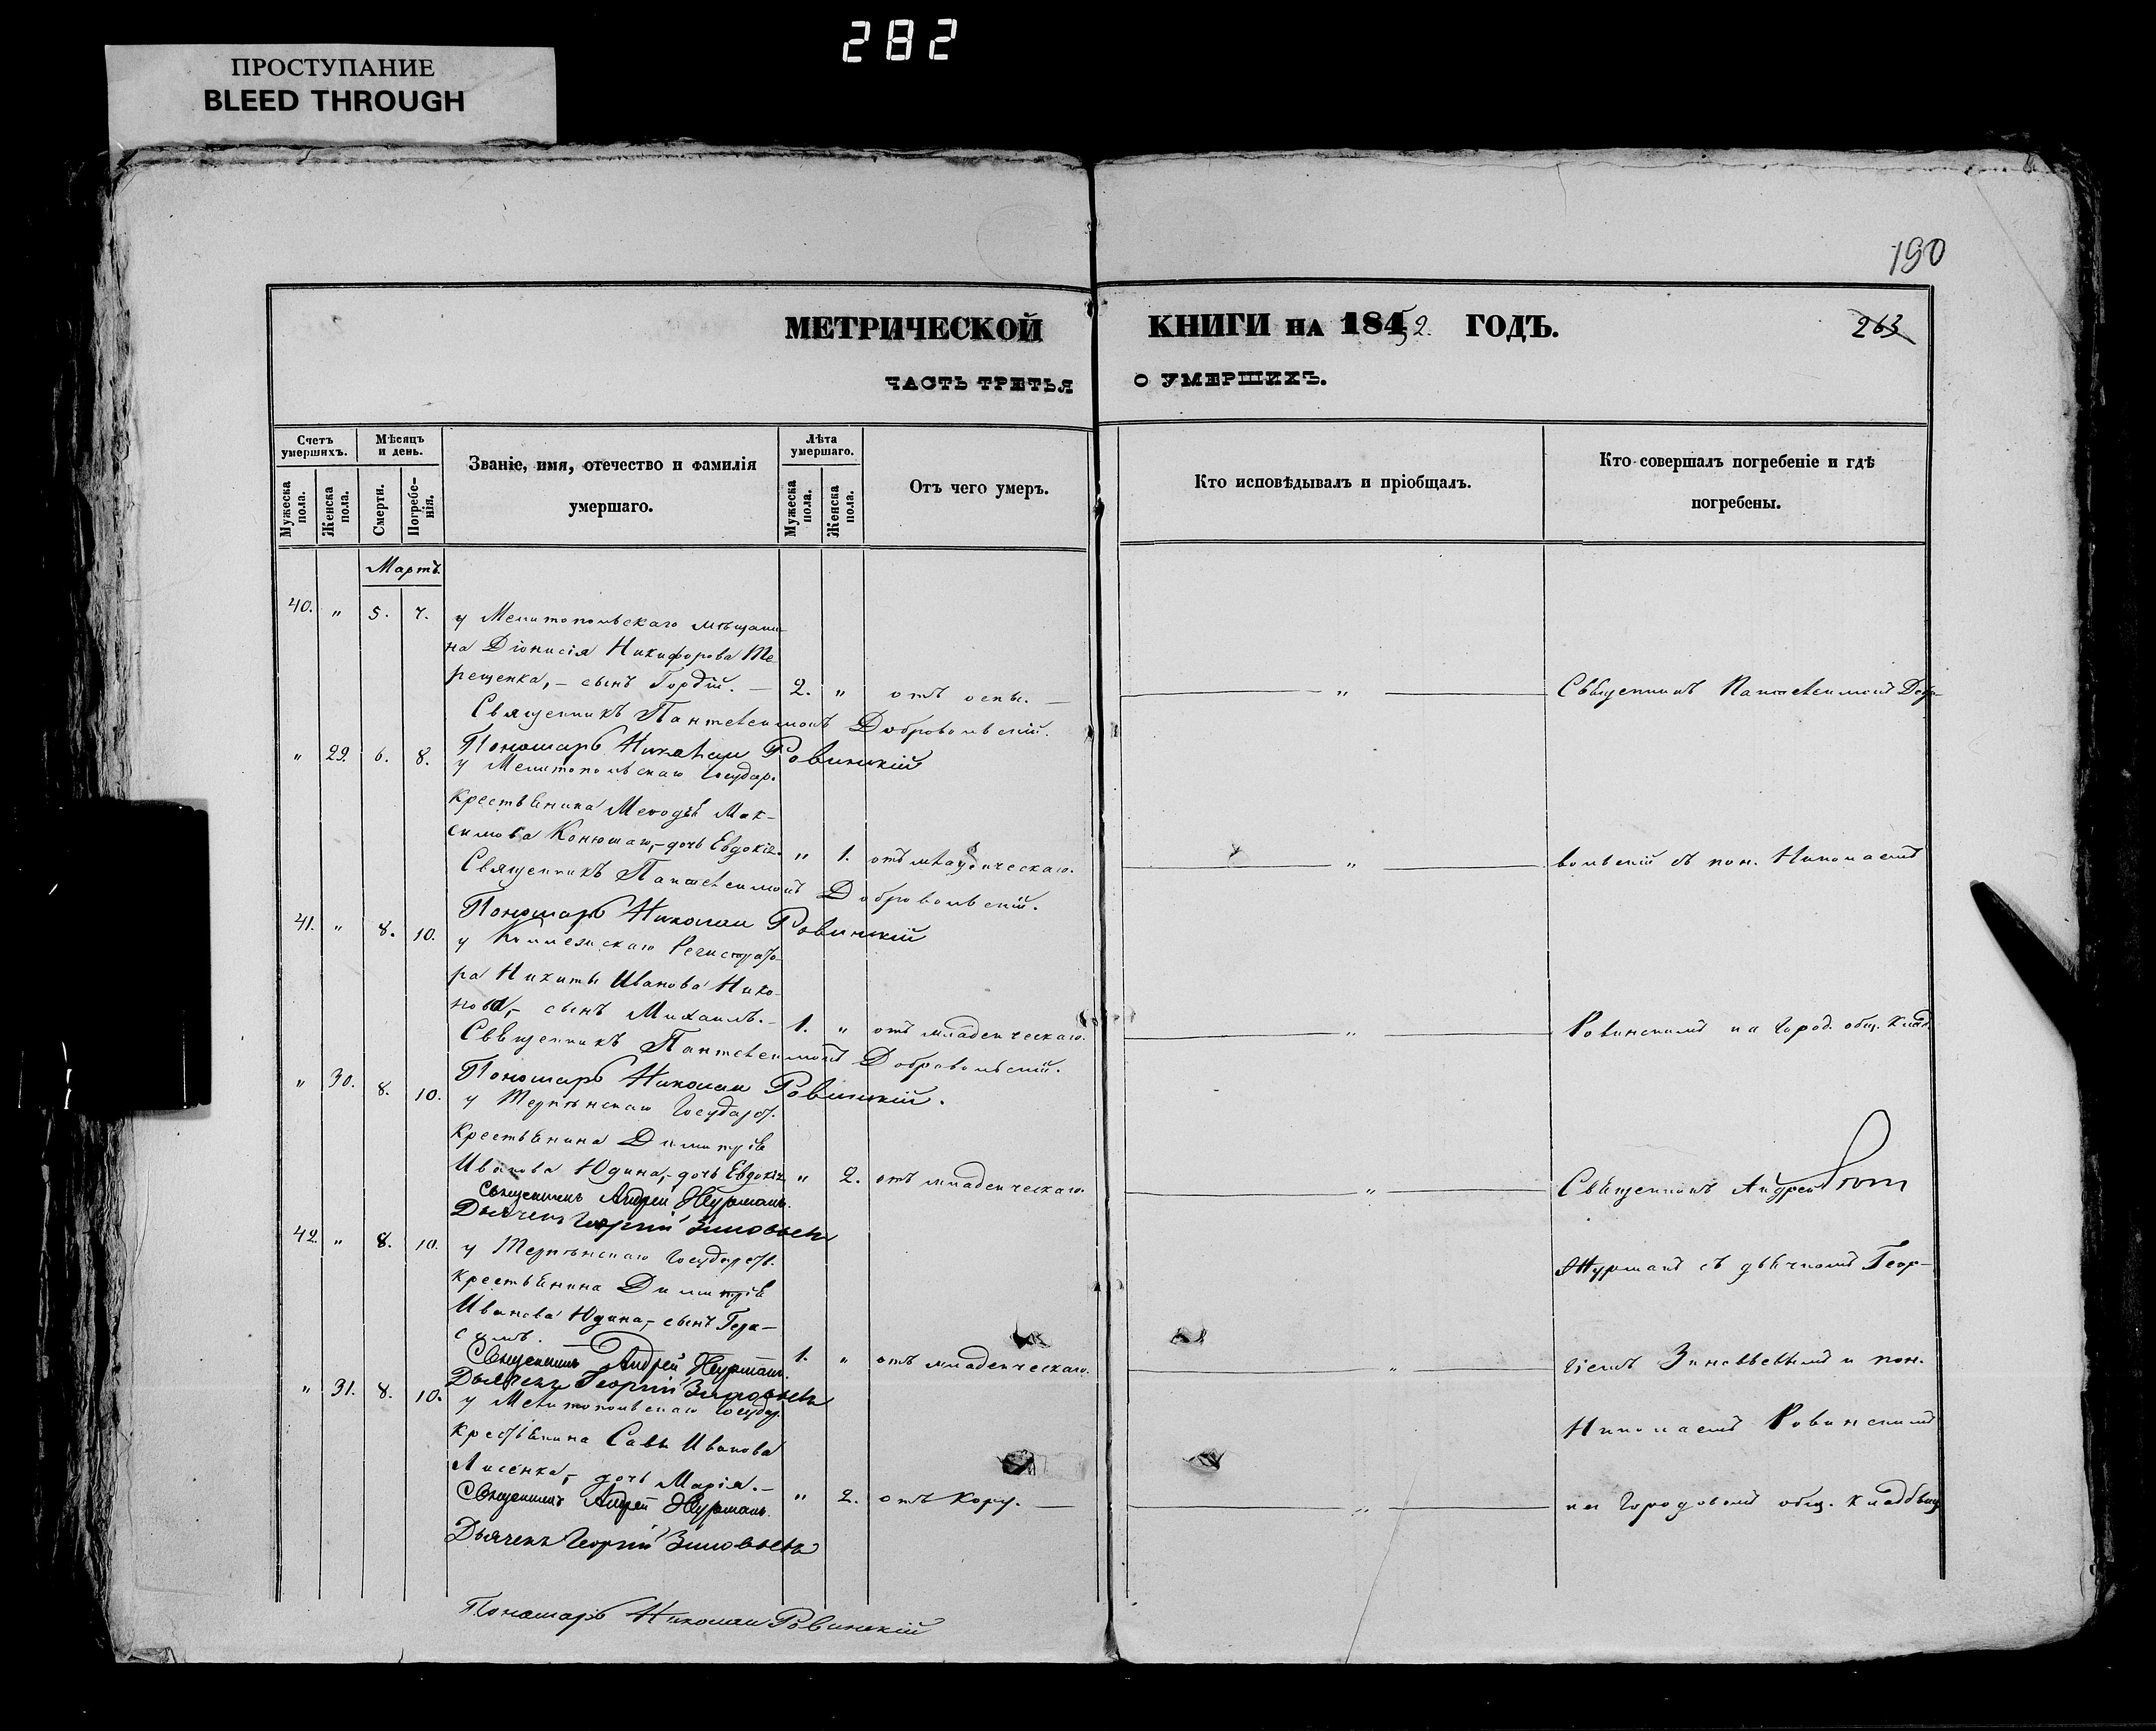 282
ПРОСТУПАНИЕ
BLEED THROUGH
190
МЕТРИЧЕСКОЙ КНИГИ НА 1852. ГОДЪ.
263
ЧАСТЬ ТРЕТЬЯ О УМЕРШИХЪ.
Счетъ умершихъ.
Мѣсяцъ и день.
Званіе, имя, отечество и фамилія умершаго.
Лѣта умершаго.
Отъ чего умеръ.
Кто исповѣдывалъ и пріобщалъ.
Кто совершалъ погребеніе и гдѣ погребены.
Мужеска пола.
Женска пола.
Смерти.
Погребенія.
Мужеска пола.
Женска пола.
Мартъ.
40. " 5. 7. у Мелитопольскаго мѣщани-
на Діонисія Никифорова Те-
рещенка, – сынъ Гордій. – 2. " отъ оспы. – " Священникъ Пантелеимонъ Добро-
Священникъ Пантелеимонъ Добровольскій.
Пономарь Николай Ровинскій
" 29. 6. 8. у Мелитопольскаго Государ.
крестьянина Меѳодія Мак-
симова Конюшаго, – дочь Евдокія. " 1. отъ младенческаго. " вольскій съ пон. Николаемъ
Священникъ Пантелеимонъ Добровольскій.
Пономарь Николай Ровинскій
41. " 8. 10. у Коллежскаго Регистрато-
ра Никиты Иванова Нико-
нова, – сынъ Михаилъ. – 1. " отъ младенческаго. " Ровинскимъ на Город. общ. клад.
Священникъ Пантелеимонъ Добровольскій.
Пономарь Николай Ровинскій.
" 30. 8. 10. у Терпѣнскаго Государст.
крестьянина Димитрія
Иванова Юдина, – дочь Евдокія " 2. отъ младенческаго. " Священникъ Андрей
Священникъ Андрей Журманъ.
Дьячекъ Георгій Зиновьевъ
42. " 8. 10. у Терпѣнскаго Государств.
крестьянина Димитрія
Журманъ съ дьячкомъ Геор-
Иванова Юдина, – сынъ Гера-
симъ. 1. " отъ младенческаго. " гіемъ Зиновьевымъ и пон.
Священникъ Андрей Журманъ.
Дьячекъ Георгій Зиновьевъ
" 31. 8. 10. у Мелитопольскаго Государ.
крестьянина Савы Иванова
Николаемъ Ровинскимъ
Лисенка, – дочь Марія. – " 2. отъ кору. – " на Городовомъ общ. кладбищ
Священникъ Андрей Журманъ.
Дьячекъ Георгій Зиновьевъ
Пономарь Николай Ровинскій